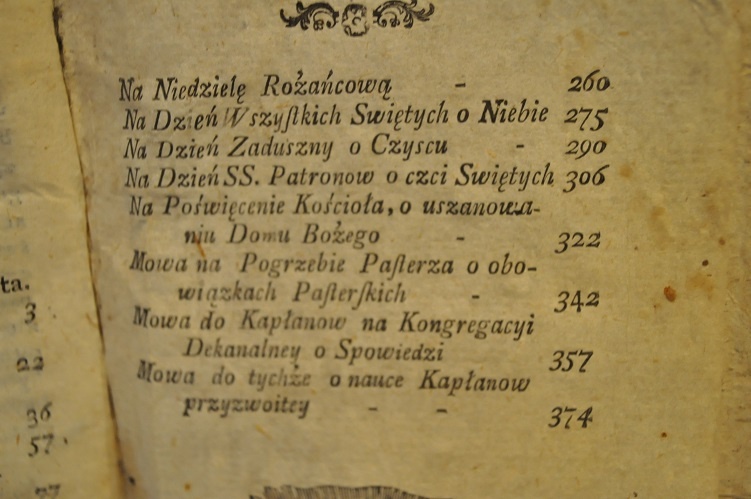 Na Niedzielę Rożańcową - 260
Na Dzień Wszyſtkich Swiętych o Niebie 275
Na Dzień Zaduszny o Czyscu - 290
Na Dzień SS. Patronow o czci Swiętych 306
Na Poświęcenie Kościoła, o uszanowa-
niu Domu Bożego - 322
Mowa na Pogrzebie Paſterza o obo-
wiązkach Paſterſkich - 342
Mowa do Kapłanow na Kongregacyi
Dekanalney o Spowiedzi 357
Mowa do tychże o nauce Kapłanow
przyzwoitey - - 374
ta.
3
22
36
57
77